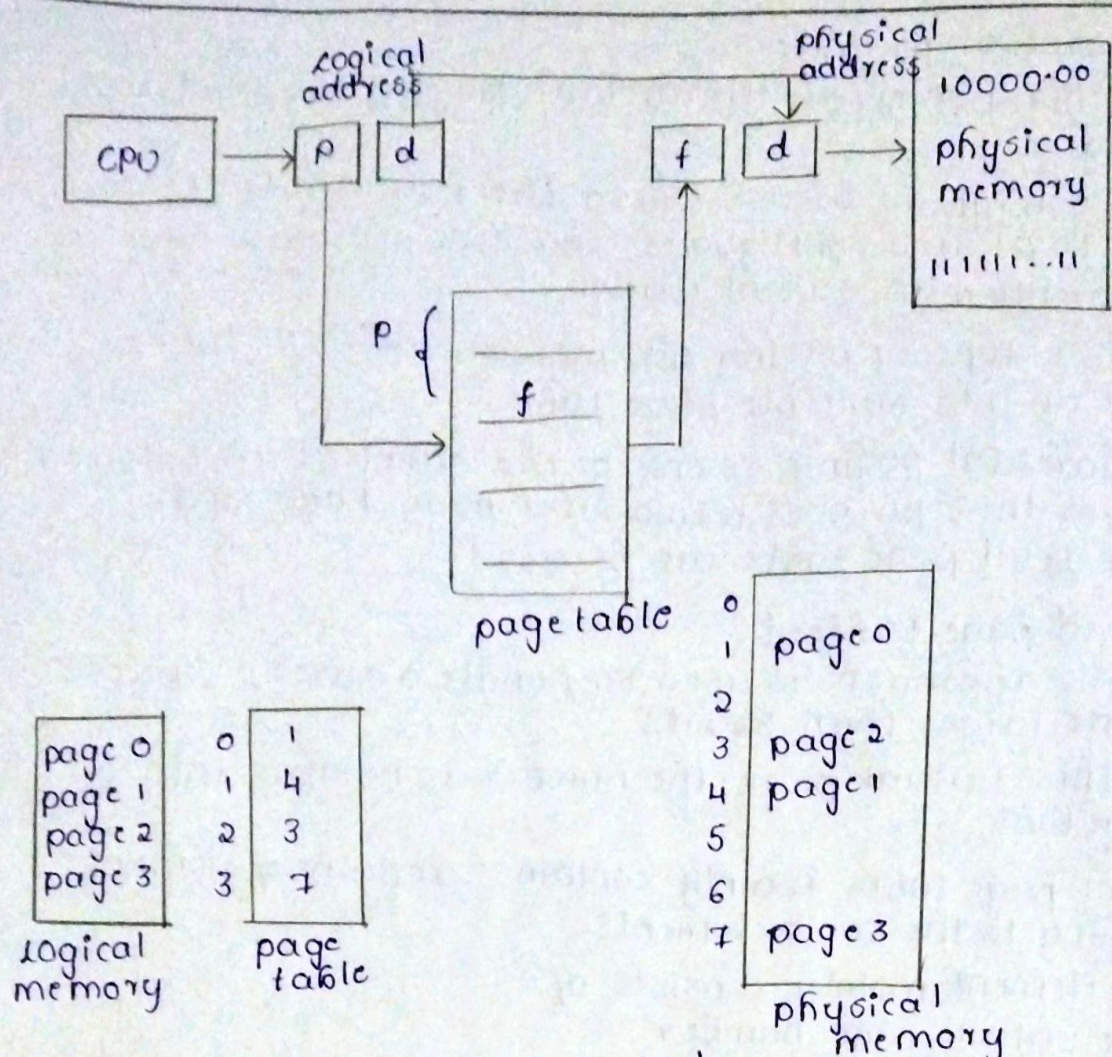 logical
address
physical
address
CPU
p
d
f
d
10000.00
physical
memory
111111..11
p
f
page table
page 0
page 1
page 2
page 3
logical
memory
0 1
1 4
2 3
3 7
page
table
0
1 page 0
2
3 page 2
4 page 1
5
6
7 page 3
physical
memory